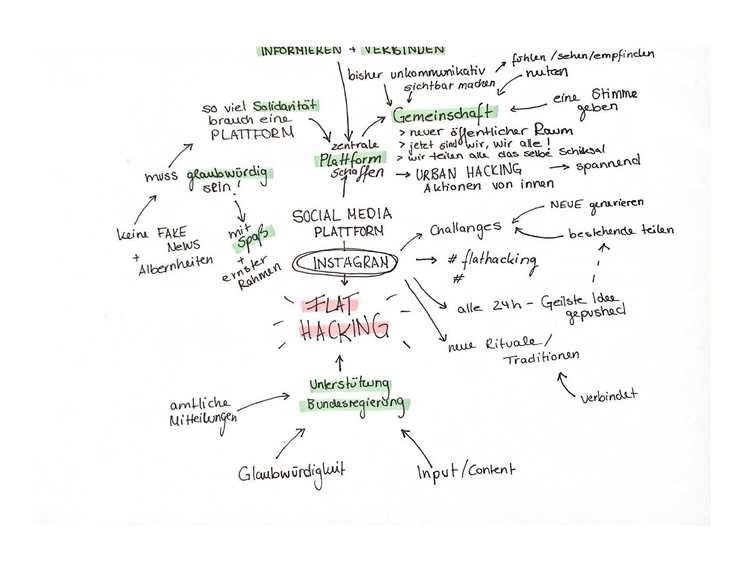 INFORMIEREN + VERBINDEN
bisher unkommunikativ
sichtbar machen
fühlen/sehen/empfinden
nutzen
eine Stimme
geben
so viel Solidarität
brauch eine
PLATTFORM
Gemeinschaft
> neuer öffentlicher Raum
> jetzt sind wir, wir alle!
> wir teilen alle das selbe Schicksal
zentrale
Plattform
schaffen
URBAN HACKING
Aktionen von innen
spannend
muss glaubwürdig
sein!
keine FAKE
NEWS
+
Albernheiten
mit
Spaß
+
ernster
Rahmen
SOCIAL MEDIA
PLATTFORM
INSTAGRAM
Challanges
NEUE generieren
bestehende teilen
# flathacking
#
alle 24h - Geilste Idee
gepushed
neue Rituale/
Traditionen
verbindet
FLAT
HACKING
Unterstützung
Bundesregierung
amtliche
Mitteilungen
Glaubwürdigkeit
Input/Content